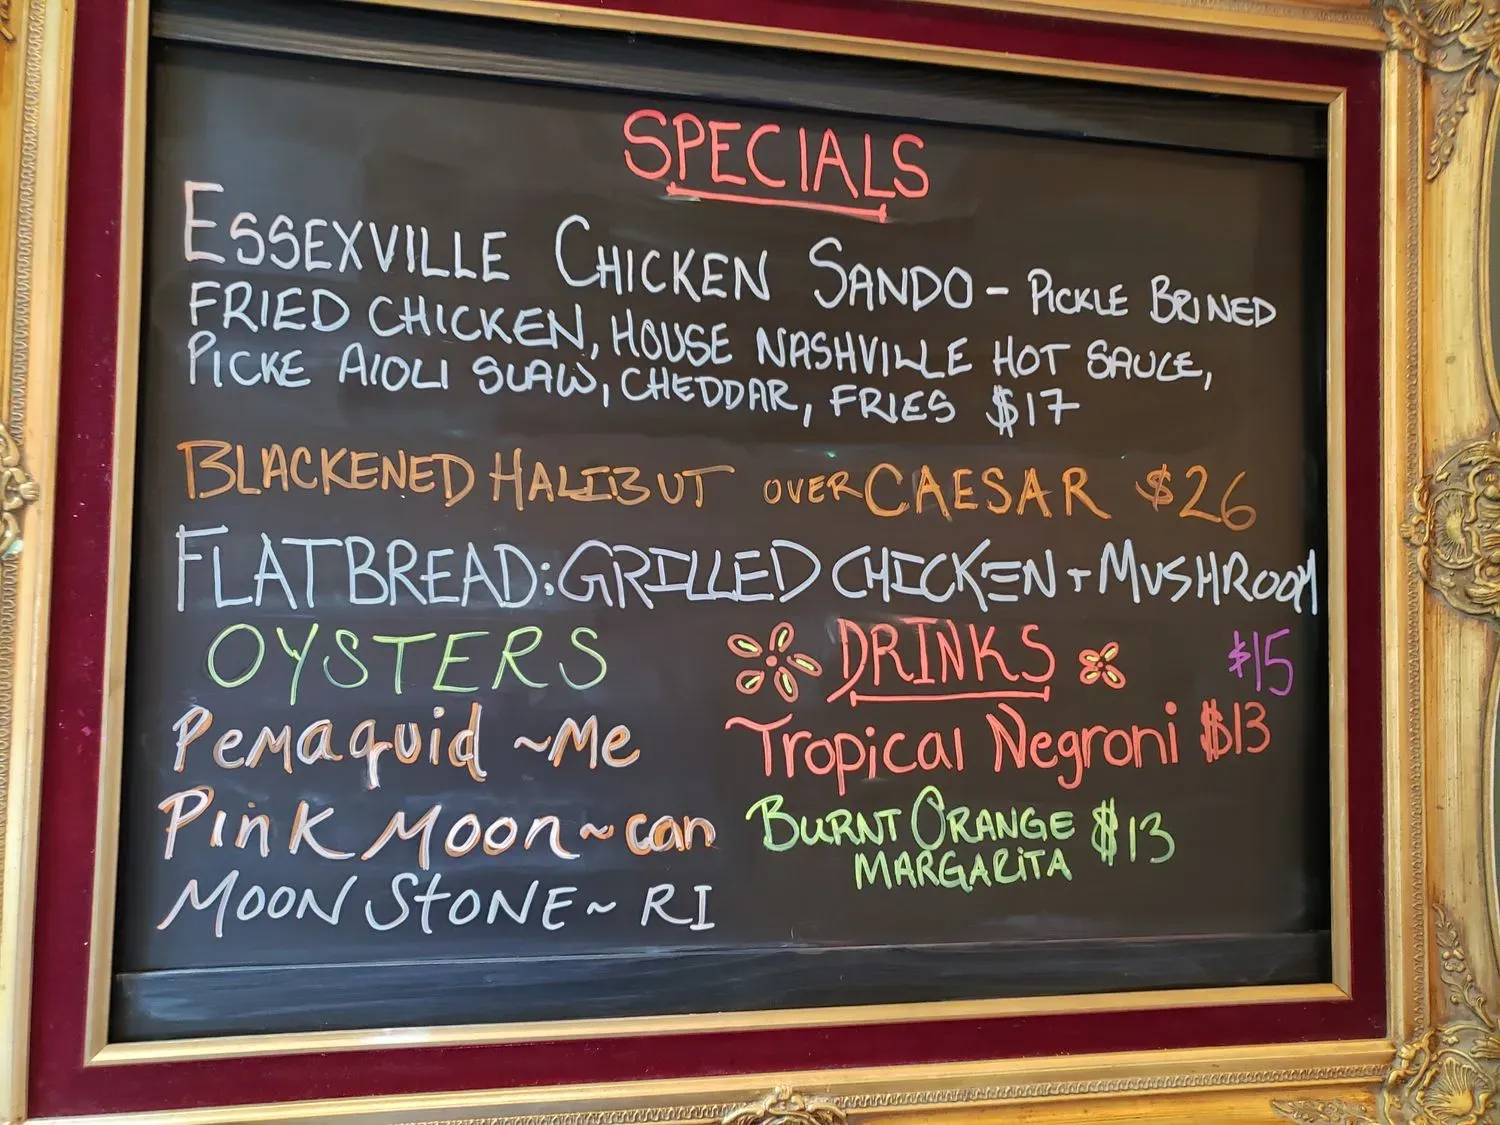 SPECIALS
ESSEXVILLE CHICKEN SANDO - PICKLE BRINED
FRIED CHICKEN, HOUSE NASHVILLE HOT SAUCE,
PICKE AIOLI SLAW, CHEDDAR, FRIES $17
BLACKENED HALIBUT OVER CAESAR $26
FLATBREAD: GRILLED CHICKEN + MUSHROOM
$15
OYSTERS
Pemaquid ~ Me
Pink Moon ~ can
MOON STONE ~ RI
DRINKS
Tropical Negroni $13
BURNT ORANGE $13
MARGARITA